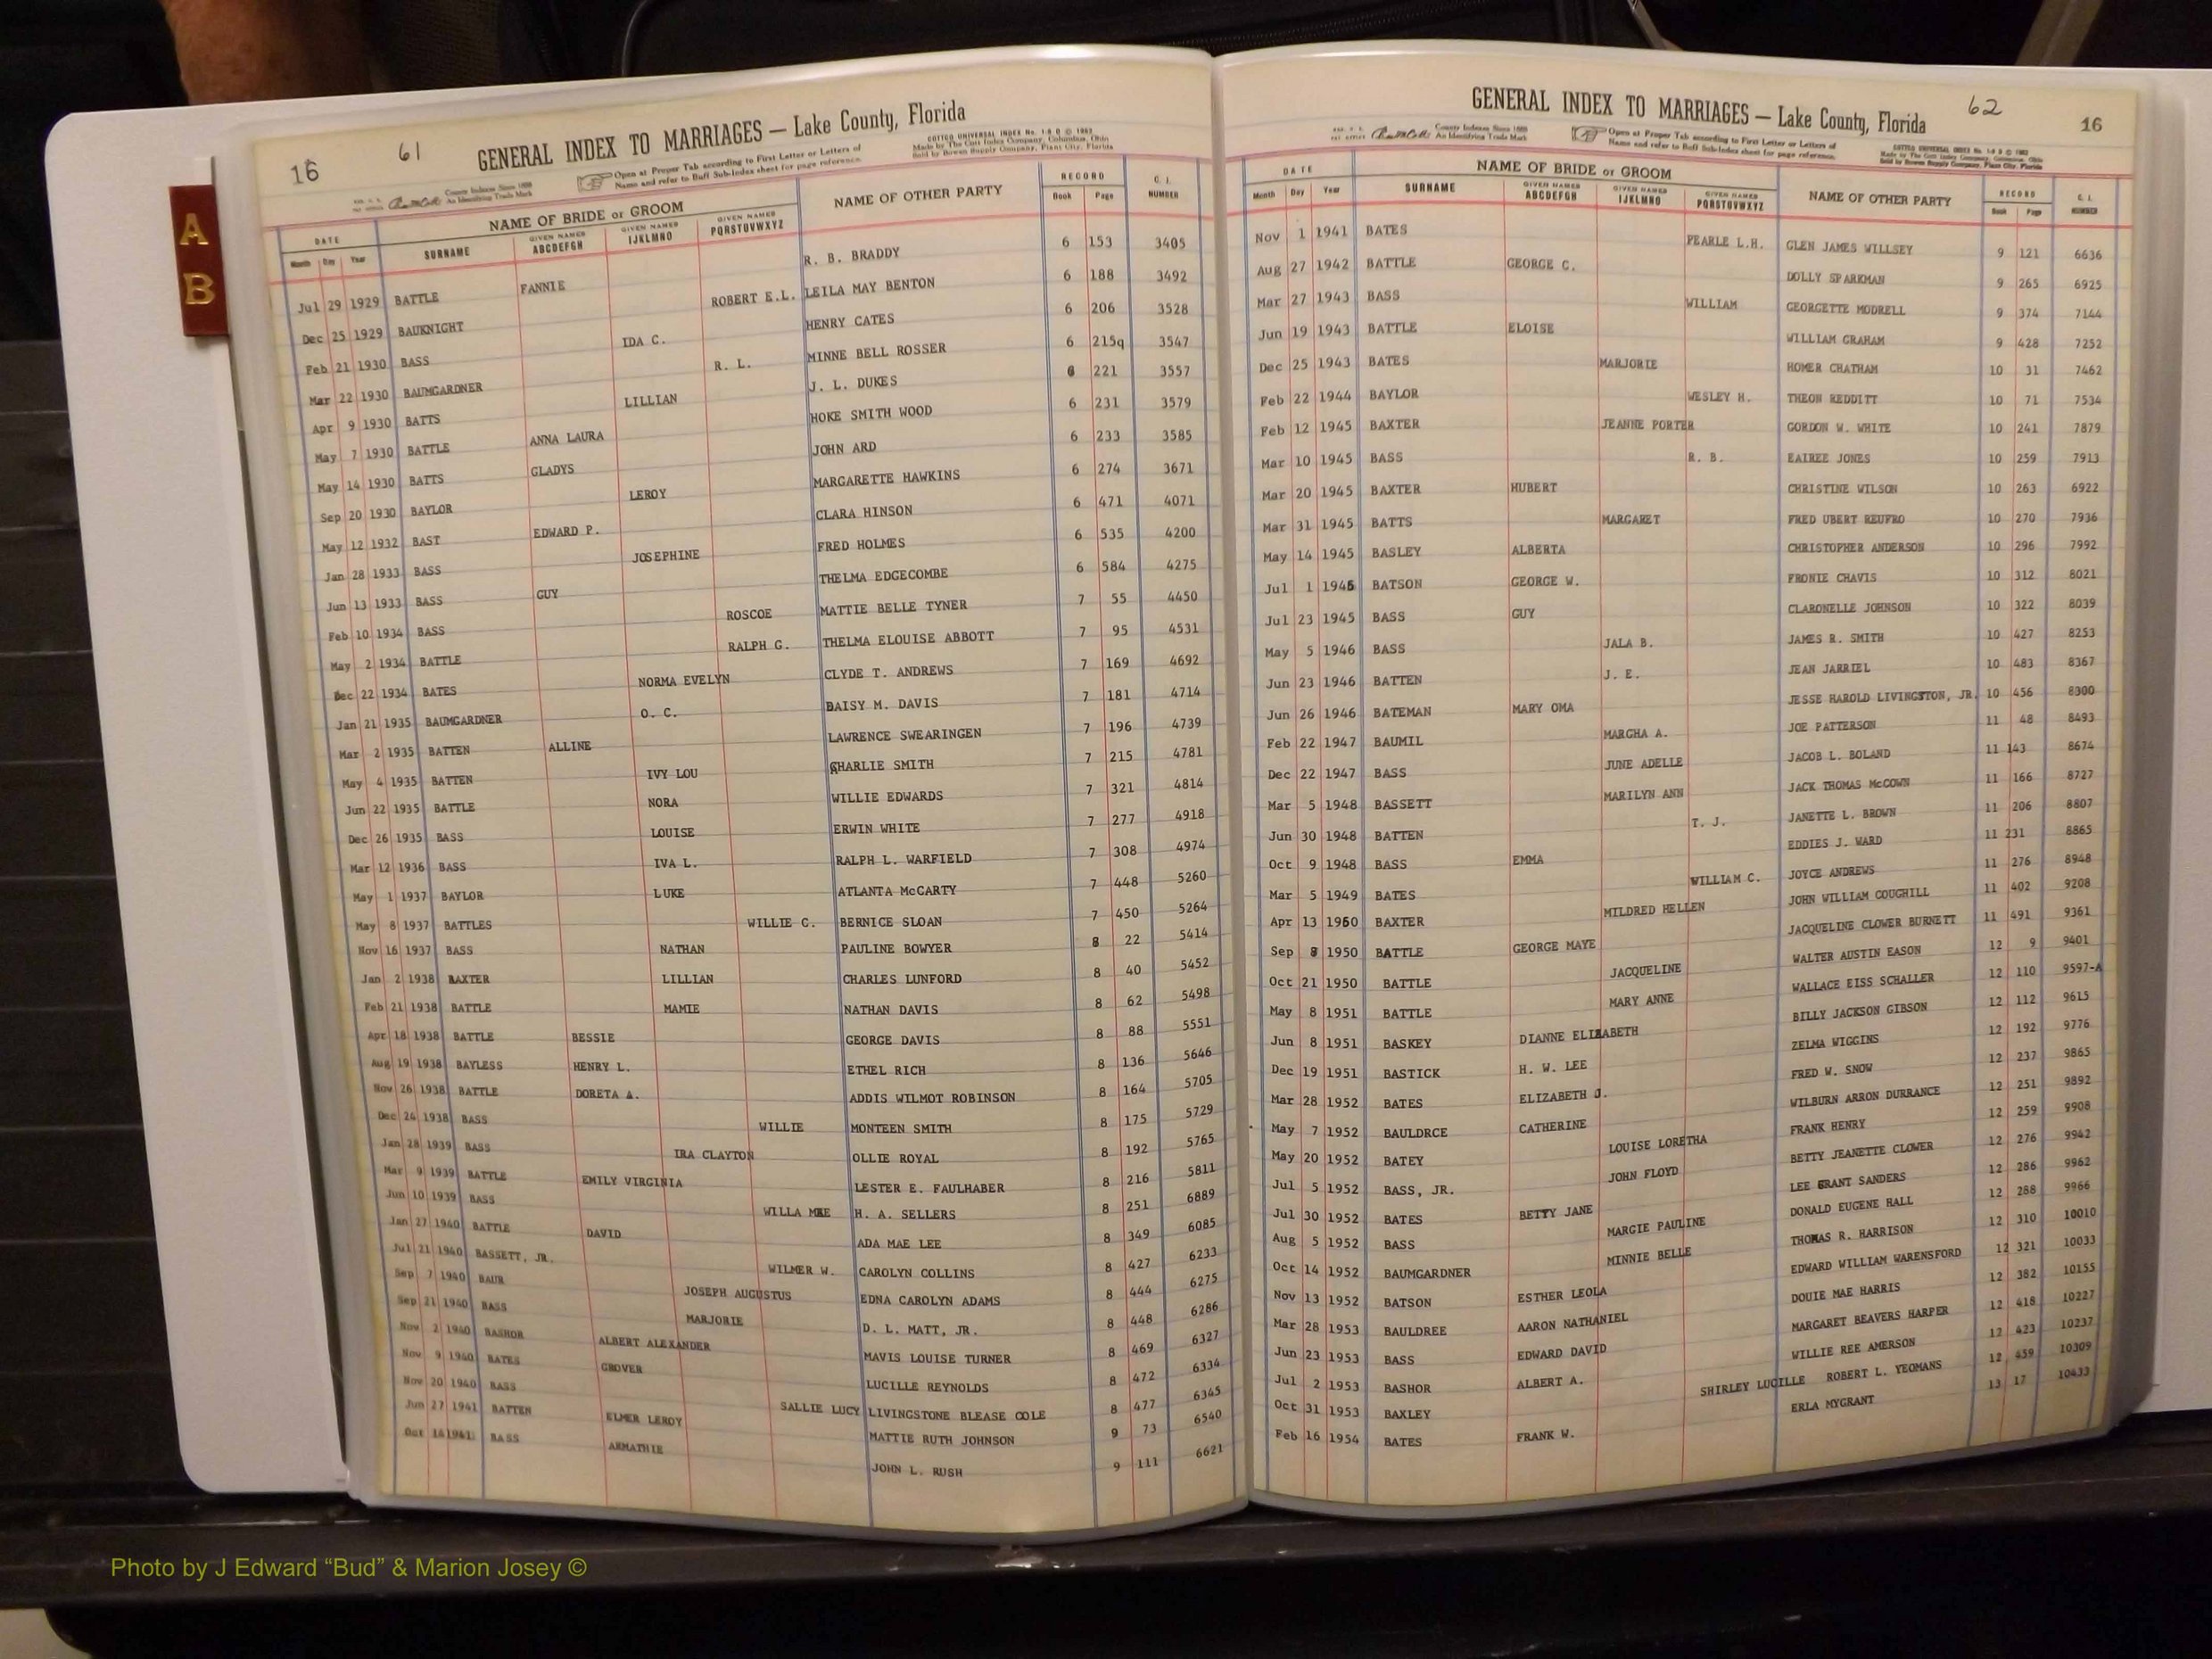 A
B
16
61
GENERAL INDEX TO MARRIAGES — Lake County, Florida
COTTCO UNIVERSAL INDEX No. 1-S D © 1962
Made by The Cott Index Company, Columbus, Ohio
Sold by Bowen Supply Company, Plant City, Florida
County Indexes Since 1888
An Identifying Trade Mark
Open at Proper Tab according to First Letter or Letters of
Name and refer to Buff Sub-Index sheet for page reference.
DATE NAME OF BRIDE or GROOM NAME OF OTHER PARTY RECORD C. I. NUMBER
Month Day Year SURNAME GIVEN NAMES ABCDEFGH GIVEN NAMES IJKLMNO GIVEN NAMES PQRSTUVWXYZ Book Page
Jul 29 1929 BATTLE FANNIE R. B. BRADDY 6 153 3405
Dec 25 1929 BAUKNIGHT ROBERT E.L. LEILA MAY BENTON 6 188 3492
Feb 21 1930 BASS IDA C. HENRY CATES 6 206 3528
Mar 22 1930 BAUMGARDNER R. L. MINNE BELL ROSSER 6 215q 3547
Apr 9 1930 BATTS LILLIAN J. L. DUKES 6 221 3557
May 7 1930 BATTLE ANNA LAURA HOKE SMITH WOOD 6 231 3579
May 14 1930 BATTS GLADYS JOHN ARD 6 233 3585
Sep 20 1930 BAYLOR LEROY MARGARETTE HAWKINS 6 274 3671
May 12 1932 BAST EDWARD P. CLARA HINSON 6 471 4071
Jan 28 1933 BASS JOSEPHINE FRED HOLMES 6 535 4200
Jun 13 1933 BASS GUY THELMA EDGECOMBE 6 584 4275
Feb 10 1934 BASS ROSCOE MATTIE BELLE TYNER 7 55 4450
May 2 1934 BATTLE RALPH G. THELMA ELOUISE ABBOTT 7 95 4531
Dec 22 1934 BATES NORMA EVELYN CLYDE T. ANDREWS 7 169 4692
Jan 21 1935 BAUMGARDNER O. C. DAISY M. DAVIS 7 181 4714
Mar 2 1935 BATTEN ALLINE LAWRENCE SWEARINGEN 7 196 4739
May 4 1935 BATTEN IVY LOU CHARLIE SMITH 7 215 4781
Jun 22 1935 BATTLE NORA WILLIE EDWARDS 7 321 4814
Dec 26 1935 BASS LOUISE ERWIN WHITE 7 277 4918
Mar 12 1936 BASS IVA L. RALPH L. WARFIELD 7 308 4974
May 1 1937 BAYLOR LUKE ATLANTA McCARTY 7 448 5260
May 8 1937 BATTLES WILLIE C. BERNICE SLOAN 7 450 5264
Nov 16 1937 BASS NATHAN PAULINE BOWYER 8 22 5414
Jan 2 1938 BAXTER LILLIAN CHARLES LUNFORD 8 40 5452
Feb 21 1938 BATTLE MAMIE NATHAN DAVIS 8 62 5498
Apr 18 1938 BATTLE BESSIE GEORGE DAVIS 8 88 5551
Aug 19 1938 BAYLESS HENRY L. ETHEL RICH 8 136 5646
Nov 26 1938 BATTLE DORETA A. ADDIS WILMOT ROBINSON 8 164 5705
Dec 24 1938 BASS WILLIE MONTEEN SMITH 8 175 5729
Jan 28 1939 BASS IRA CLAYTON OLLIE ROYAL 8 192 5765
Mar 9 1939 BATTLE EMILY VIRGINIA LESTER E. FAULHABER 8 216 5811
Jun 10 1939 BASS WILLA MAE H. A. SELLERS 8 251 6889
Jan 27 1940 BATTLE DAVID ADA MAE LEE 8 349 6085
Jul 21 1940 BASSETT, JR. WILMER W. CAROLYN COLLINS 8 427 6233
Sep 7 1940 BAUR JOSEPH AUGUSTUS EDNA CAROLYN ADAMS 8 444 6275
Sep 21 1940 BASS MARJORIE D. L. MATT, JR. 8 448 6286
Nov 2 1940 BASHOR ALBERT ALEXANDER MAVIS LOUISE TURNER 8 469 6327
Nov 9 1940 BATES GROVER LUCILLE REYNOLDS 8 472 6334
Nov 20 1940 BASS SALLIE LUCY LIVINGSTONE BLEASE COLE 8 477 6345
Jun 27 1941 BATTEN ELMER LEROY MATTIE RUTH JOHNSON 9 73 6540
Oct 14 1941 BASS ARMATHIE JOHN L. RUSH 9 111 6621
GENERAL INDEX TO MARRIAGES — Lake County, Florida
62
16
County Indexes Since 1888
An Identifying Trade Mark
Open at Proper Tab according to First Letter or Letters of
Name and refer to Buff Sub-Index sheet for page reference.
COTTCO UNIVERSAL INDEX No. 1-S D © 1962
Made by The Cott Index Company, Columbus, Ohio
Sold by Bowen Supply Company, Plant City, Florida
DATE NAME OF BRIDE or GROOM NAME OF OTHER PARTY RECORD C. I. NUMBER
Month Day Year SURNAME GIVEN NAMES ABCDEFGH GIVEN NAMES IJKLMNO GIVEN NAMES PQRSTUVWXYZ Book Page
Nov 1 1941 BATES PEARLE L.H. GLEN JAMES WILLSEY 9 121 6636
Aug 27 1942 BATTLE GEORGE C. DOLLY SPARKMAN 9 265 6925
Mar 27 1943 BASS WILLIAM GEORGETTE MODRELL 9 374 7144
Jun 19 1943 BATTLE ELOISE WILLIAM GRAHAM 9 428 7252
Dec 25 1943 BATES MARJORIE HOMER CHATHAM 10 31 7462
Feb 22 1944 BAYLOR WESLEY H. THEON REDDITT 10 71 7534
Feb 12 1945 BAXTER JEANNE PORTER GORDON W. WHITE 10 241 7879
Mar 10 1945 BASS R. B. EAIREE JONES 10 259 7913
Mar 20 1945 BAXTER HUBERT CHRISTINE WILSON 10 263 6922
Mar 31 1945 BATTS MARGARET FRED UBERT REUFRO 10 270 7936
May 14 1945 BASLEY ALBERTA CHRISTOPHER ANDERSON 10 296 7992
Jul 1 1945 BATSON GEORGE W. FRONIE CHAVIS 10 312 8021
Jul 23 1945 BASS GUY CLARONELLE JOHNSON 10 322 8039
May 5 1946 BASS JALA B. JAMES R. SMITH 10 427 8253
Jun 23 1946 BATTEN J. E. JEAN JARRIEL 10 483 8367
Jun 26 1946 BATEMAN MARY OMA JESSE HAROLD LIVINGSTON, JR. 10 456 8300
Feb 22 1947 BAUMIL MARGHA A. JOE PATTERSON 11 48 8493
Dec 22 1947 BASS JUNE ADELLE JACOB L. BOLAND 11 143 8674
Mar 5 1948 BASSETT MARILYN ANN JACK THOMAS McCOWN 11 166 8727
Jun 30 1948 BATTEN T. J. JANETTE L. BROWN 11 206 8807
Oct 9 1948 BASS EMMA EDDIES J. WARD 11 231 8865
Mar 5 1949 BATES WILLIAM C. JOYCE ANDREWS 11 276 8948
Apr 13 1950 BAXTER MILDRED HELLEN JOHN WILLIAM COUGHILL 11 402 9208
Sep 8 1950 BATTLE GEORGE MAYE JACQUELINE CLOWER BURNETT 11 491 9361
Oct 21 1950 BATTLE JACQUELINE WALTER AUSTIN EASON 12 9 9401
May 8 1951 BATTLE MARY ANNE WALLACE EISS SCHALLER 12 110 9597-A
Jun 8 1951 BASKEY DIANNE ELIZABETH BILLY JACKSON GIBSON 12 112 9615
Dec 19 1951 BASTICK H. W. LEE ZELMA WIGGINS 12 192 9776
Mar 28 1952 BATES ELIZABETH J. FRED W. SNOW 12 237 9865
May 7 1952 BAULDRCE CATHERINE WILBURN ARRON DURRANCE 12 251 9892
May 20 1952 BATEY LOUISE LORETHA FRANK HENRY 12 259 9908
Jul 5 1952 BASS, JR. JOHN FLOYD BETTY JEANETTE CLOWER 12 276 9942
Jul 30 1952 BATES BETTY JANE LEE GRANT SANDERS 12 286 9962
Aug 5 1952 BASS MARGIE PAULINE DONALD EUGENE HALL 12 288 9966
Oct 14 1952 BAUMGARDNER MINNIE BELLE THOMAS R. HARRISON 12 310 10010
Nov 13 1952 BATSON ESTHER LEOLA EDWARD WILLIAM WARENSFORD 12 321 10033
Mar 28 1953 BAULDREE AARON NATHANIEL DOUIE MAE HARRIS 12 382 10155
Jun 23 1953 BASS EDWARD DAVID MARGARET BEAVERS HARPER 12 418 10227
Jul 2 1953 BASHOR ALBERT A. WILLIE REE AMERSON 12 423 10237
Oct 31 1953 BAXLEY SHIRLEY LUCILLE ROBERT L. YEOMANS 12 459 10309
Feb 16 1954 BATES FRANK W. ERLA MYGRANT 13 17 10433
Photo by J Edward “Bud” & Marion Josey ©